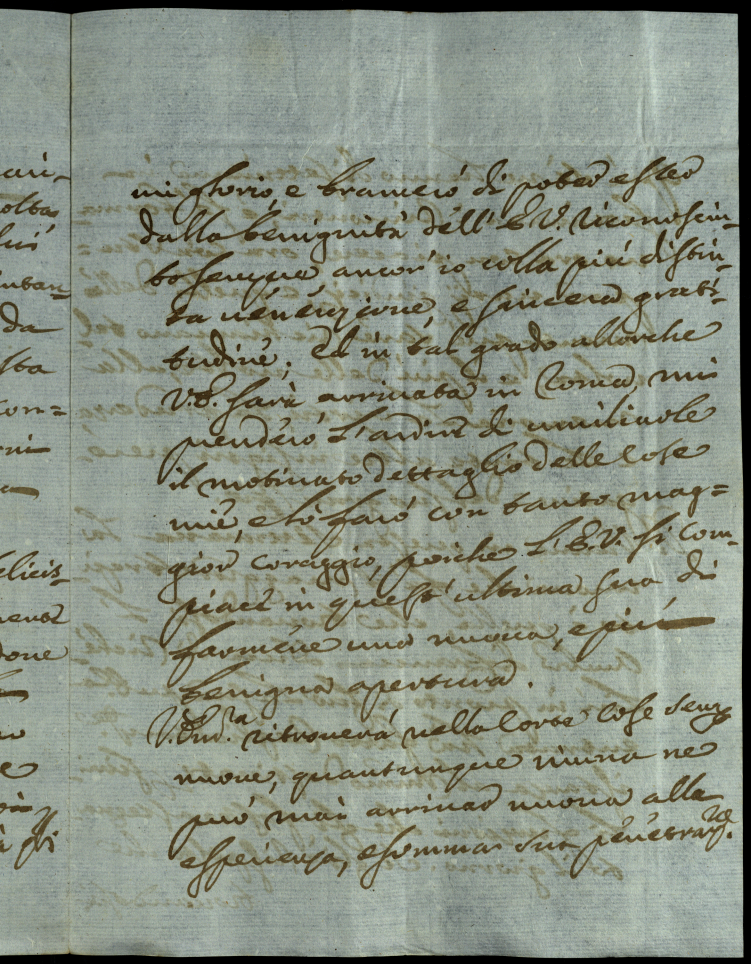 mi glorio, e bramerò di poter esser
dalla benignità dell' E.V. riconosciu-
to sempre ancor' io colla più distin-
ta venerazione, e sincera grati-
tudine; Ed in tal grado allorche
V.E. sarà arrivata in Roma, mi
prenderò l'ardire di umiliarle
il motivato dettaglio delle cose
mie, e lo farò con tanto mag=
gior coraggio, poiche l'E.V. si com-
piace in quest' ultima sua di
farmene una nuova, e più
benigna apertura.
V. Em.ᵃ ritroverà nella Corte cose senza
nuove, quantunque niuna ne
può mai arrivar nuova alla
esperienza, e somma sua penetraz.ⁿᵉ
ari-
olta
lui
ntan=
da
sta
con=
elicis-
done